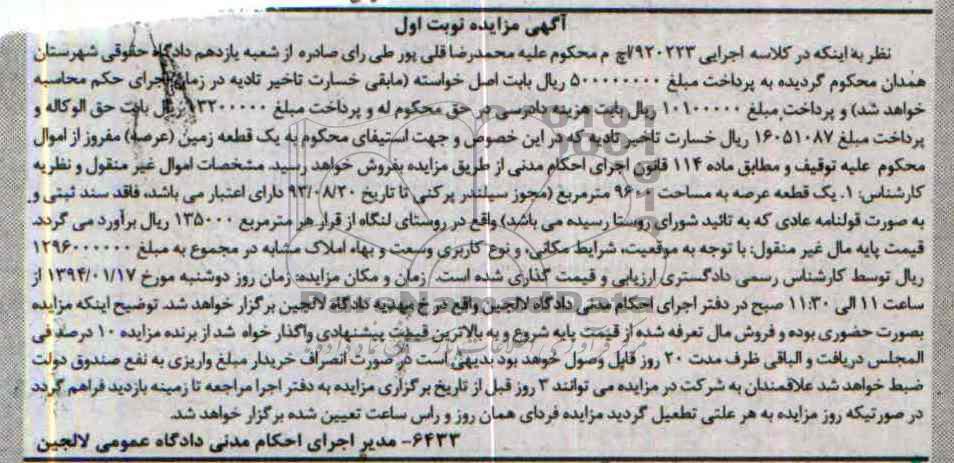 آگهی مزایده نوبت اول
نظر به اینکه در کلاسه اجرایی ۹۲۰۲۲۳/اچ م محکوم علیه محمدرضا قلی پور طی رای صادره از شعبه یازدهم دادگاه حقوقی شهرستان
همدان محکوم گردیده به پرداخت مبلغ ۵۰۰۰۰۰۰۰۰ ریال بابت اصل خواسته (مابقی خسارت تاخیر تادیه در زمان اجرای حکم محاسبه
خواهد شد) و پرداخت مبلغ ۱۰۱۰۰۰۰۰ ریال بابت هزینه دادرسی در حق محکوم له و پرداخت مبلغ ۱۳۲۰۰۰۰۰ ریال بابت حق الوکاله و
پرداخت مبلغ ۱۶۰۵۱۰۸۷ ریال خسارت تاخیر تادیه که در این خصوص و جهت استیفای محکوم به یک قطعه زمین (عرصه) مفروز از اموال
محکوم علیه توقیف و مطابق ماده ۱۱۴ قانون اجرای احکام مدنی از طریق مزایده بفروش خواهد رسید. مشخصات اموال غیر منقول و نظریه
کارشناس: ۱. یک قطعه عرصه به مساحت ۹۶۰۰ مترمربع (مجوز سیلندر پرکنی تا تاریخ ۹۲/۰۸/۲۰ دارای اعتبار می باشد، فاقد سند ثبتی و
به صورت قولنامه عادی که به تائید شورای روستا رسیده می باشد) واقع در روستای لنگاه از قرار هر مترمربع ۱۳۵۰۰۰ ریال برآورد می گردد.
قیمت پایه مال غیر منقول: با توجه به موقعیت، شرایط مکانی، و نوع کاربری وسعت و بهاء املاک مشابه در مجموع به مبلغ ۱۲۹۶۰۰۰۰۰۰
ریال توسط کارشناس رسمی دادگستری ارزیابی و قیمت گذاری شده است. زمان و مکان مزایده: زمان روز دوشنبه مورخ ۱۳۹۴/۰۱/۱۷ از
ساعت ۱۱ الی ۱۱:۳۰ صبح در دفتر اجرای احکام مدنی دادگاه لالجین واقع در خ مهدیه دادگاه لالجین برگزار خواهد شد. توضیح اینکه مزایده
بصورت حضوری بوده و فروش مال تعرفه شده از قیمت پایه شروع و به بالاترین قیمت پیشنهادی واگذار خواهد شد از برنده مزایده ۱۰ درصد فی
المجلس دریافت و الباقی ظرف مدت ۲۰ روز قابل وصول خواهد بود بدیهی است در صورت انصراف خریدار مبلغ واریزی به نفع صندوق دولت
ضبط خواهد شد علاقمندان به شرکت در مزایده می توانند ۳ روز قبل از تاریخ برگزاری مزایده به دفتر اجرا مراجعه تا زمینه بازدید فراهم گردد
در صورتیکه روز مزایده به هر علتی تطعیل گردید مزایده فردای همان روز و راس ساعت تعیین شده برگزار خواهد شد.
۶۴۳۳- مدیر اجرای احکام مدنی دادگاه عمومی لالجین
ParsNamadData